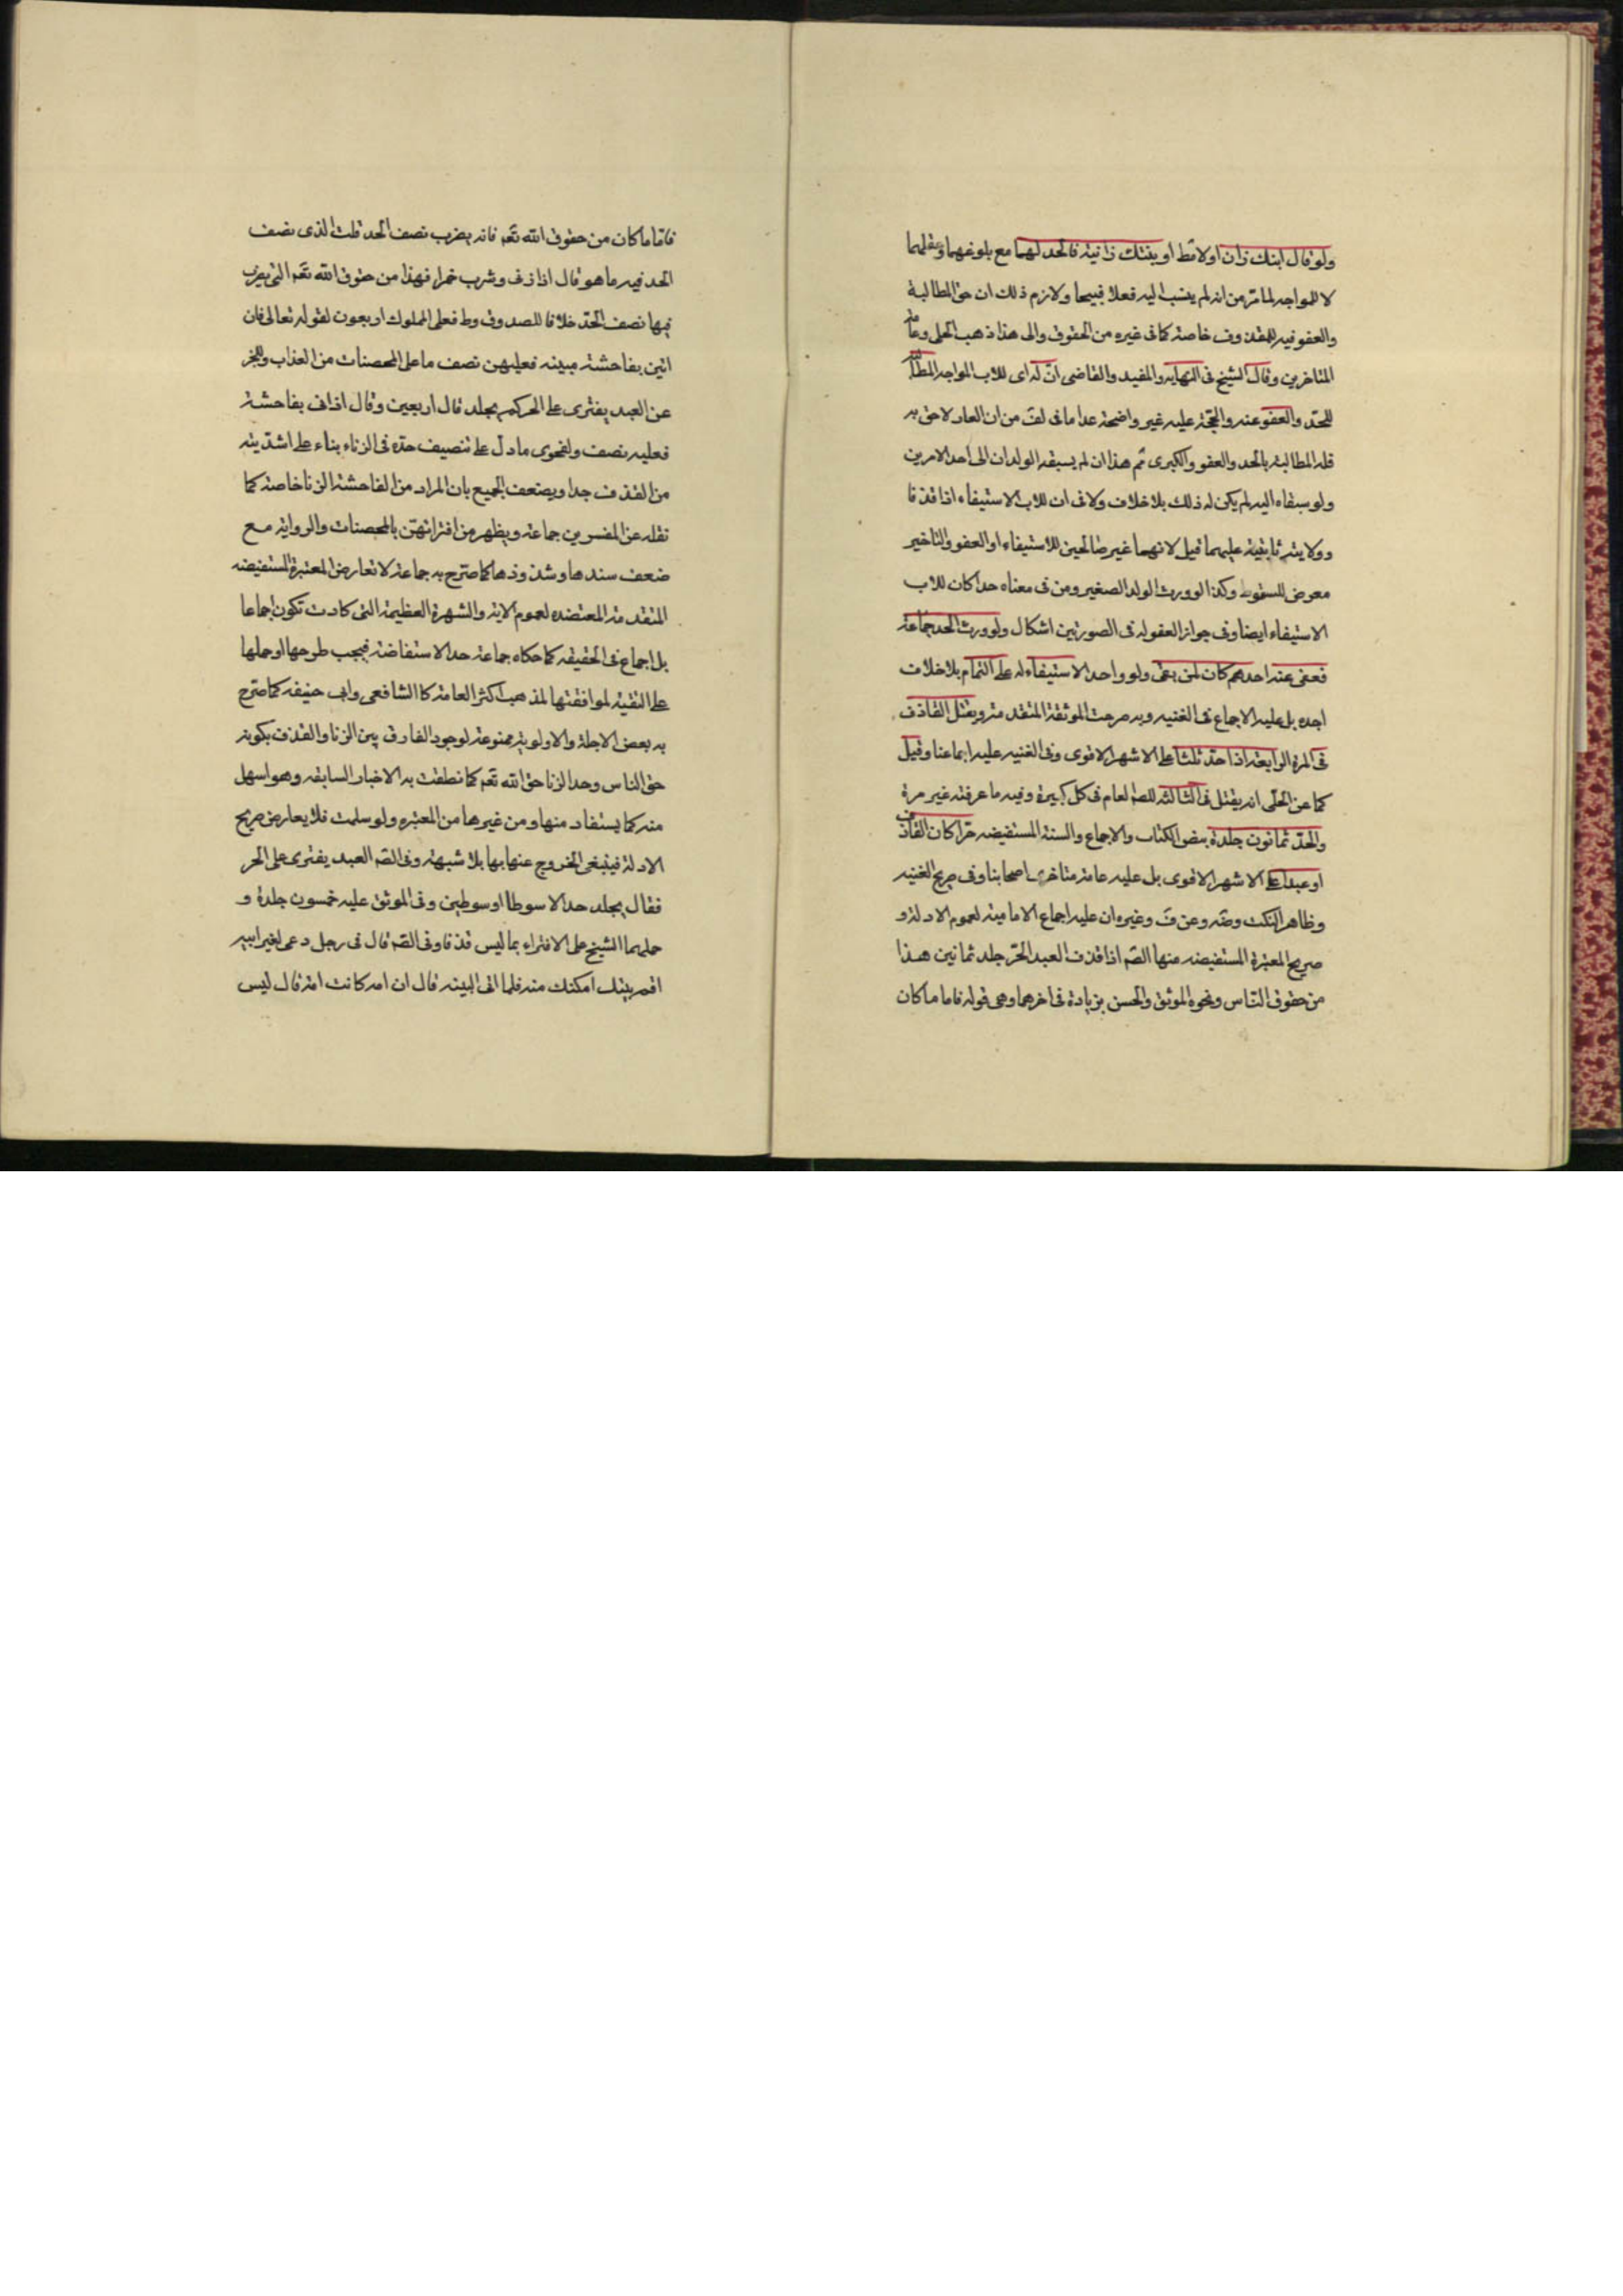 ولو قال ابنك زان او لائط او بنتك زانية فالحد لهما مع بلوغهما وعقلهما
لا للمواجه لما مر من انه لم ينسب اليه فعلا قبيحا ولازم ذلك ان حق المطالبة
والعفو فيه للمقذوف خاصة كما فى غيره من الحقوق والى هذا ذهب الحلى وعامة
المتاخرين وقال الشيخ فى النهاية والمفيد والقاضى ان له اى للاب المواجه المطالبة
للحد والعفو عنه والحجة عليه غير واضحة عدا ما فى لف من ان العار لاحق به
فله المطالبة بالحد والعفو والكبرى ثم هذا ان لم يسبقه الولدان الى احد الامرين
ولو سبقاه اليه لم يكن له ذلك بلا خلاف ولا فى ان للاب الاستيفاء اذا قذفا
وولايته ثابتة عليهما قيل لانهما غير صالحين للاستيفاء او العفو والتاخير
معرض للسقوط وكذا لو ورث الولد الصغير ومن فى معناه حدا كان للاب
الاستيفاء ايضا وفى جواز العفو له فى الصورتين اشكال ولو ورث الحد جماعة
فعفى عنه احدهم كان لمن بقى ولو واحدا الاستيفاء له على التمام بلا خلاف
اجده بل عليه الاجماع فى الغنيه وبه صرحت الموثقة المتقدمة ويقتل القاذف
فى المرة الرابعة اذا حد ثلثا على الاشهر الاقوى وفى الغنيه عليه اجماعنا وقيل
كما عن الحلى انه يقتل فى الثالثه للصم العام فى كل كبيرة وفيه ما عرفته غير مرة
والحد ثمانون جلدة بنص الكتاب والاجماع والسنة المستفيضه حرا كان القاذف
او عبدا على الاشهر الاقوى بل عليه عامة متاخرى اصحابنا وفى صريح الغنيه
وظاهر النكت وضه وعن ف وغيره ان عليه اجماع الاماميه لعموم الادلة و
صريح المعتبرة المستفيضه منها الصم اذا قذف العبد الحر جلد ثمانين هذا
من حقوق الناس ونحوه الموثق والحسن بزيادة فى اخرهما وهى قوله فاما ما كان
فاما ما كان من حقوق الله تعم فانه يضرب نصف الحد قلت الذى نصف
الحد فيه ما هو قال اذا زنى وشرب خمرا فهذا من حقوق الله تعم التى يضرب
فيها نصف الحد خلافا للصدوق وط فعلى المملوك اربعون لقوله تعالى فان
اتين بفاحشة مبينه فعليهن نصف ما على المحصنات من العذاب وللخبر
عن العبد يفترى على الحر كم يجلد قال اربعين وقال اذا اتى بفاحشة
فعليه نصف ولفحوى ما دل على تنصيف حده فى الزناء بناء على اشديته
من القذف جدا ويضعف الجميع بان المراد من الفاحشة الزنا خاصة كما
نقله عن المفسرين جماعة ويظهر من اقترانهن بالمحصنات والرواية مع
ضعف سندها وشذوذها كما صرح به جماعة لا تعارض المعتبرة المستفيضه
المتقدمة المعتضده لعموم الاية والشهرة العظيمة التى كادت تكون اجماعا
بل اجماع فى الحقيقه كما حكاه جماعة حد الاستفاضة فيجب طرحها او حملها
على التقية لموافقتها لمذهب اكثر العامة كالشافعى وابى حنيفه كما صرح
به بعض الاجلة والاولوية ممنوعة لوجود الفارق بين الزنا والقذف بكونه
حق الناس وحد الزنا حق الله تعم كما نطقت به الاخبار السابقه وهو اسهل
منه كما يستفاد منها ومن غيرها من المعتبره ولو سلمت فلا يعارض صريح
الادلة فينبغى الخروج عنها بها بلا شبهة وفى الصم العبد يفترى على الحر
فقال يجلد حدا الا سوطا او سوطين وفى الموثق عليه خمسون جلدة و
حملهما الشيخ على الافتراء بما ليس قذفا وفى الصم قال فى رجل دعى لغير ابيه
اقم بينتك امكنك منه فلما اتى البينه قال ان امه كانت امة قال ليس